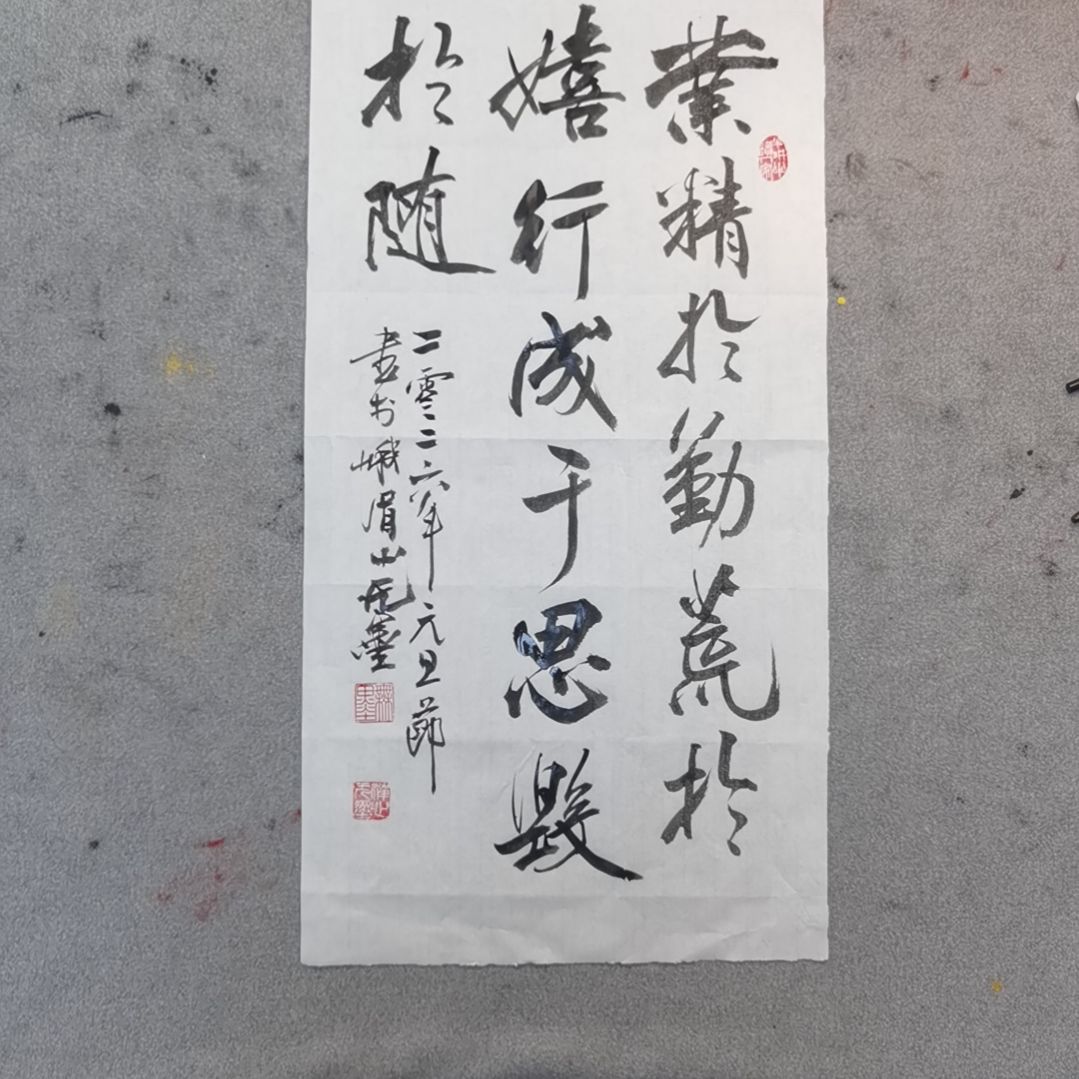 業精於勤荒於
嬉行成于思毀
於随
二零二六年元旦節
書於峨眉山